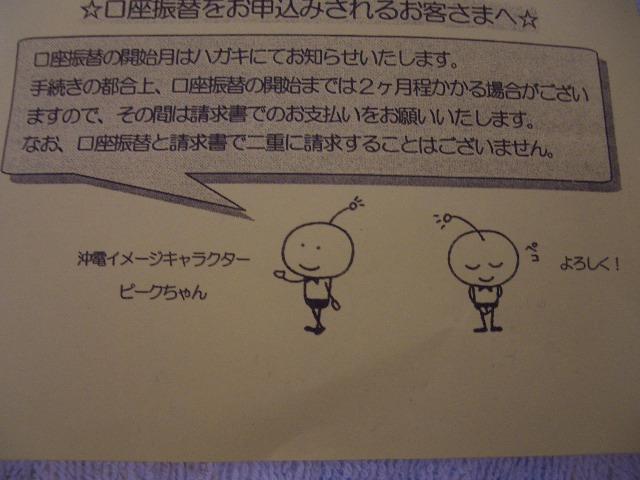 ☆口座振替をお申込みされるお客さまへ☆
口座振替の開始月はハガキにてお知らせいたします。
手続きの都合上、口座振替の開始までは２ヶ月程かかる場合がござい
ますので、その間は請求書でのお支払いをお願いいたします。
なお、口座振替と請求書で二重に請求することはございません。
沖電イメージキャラクター
ピークちゃん
ペコ
よろしく！